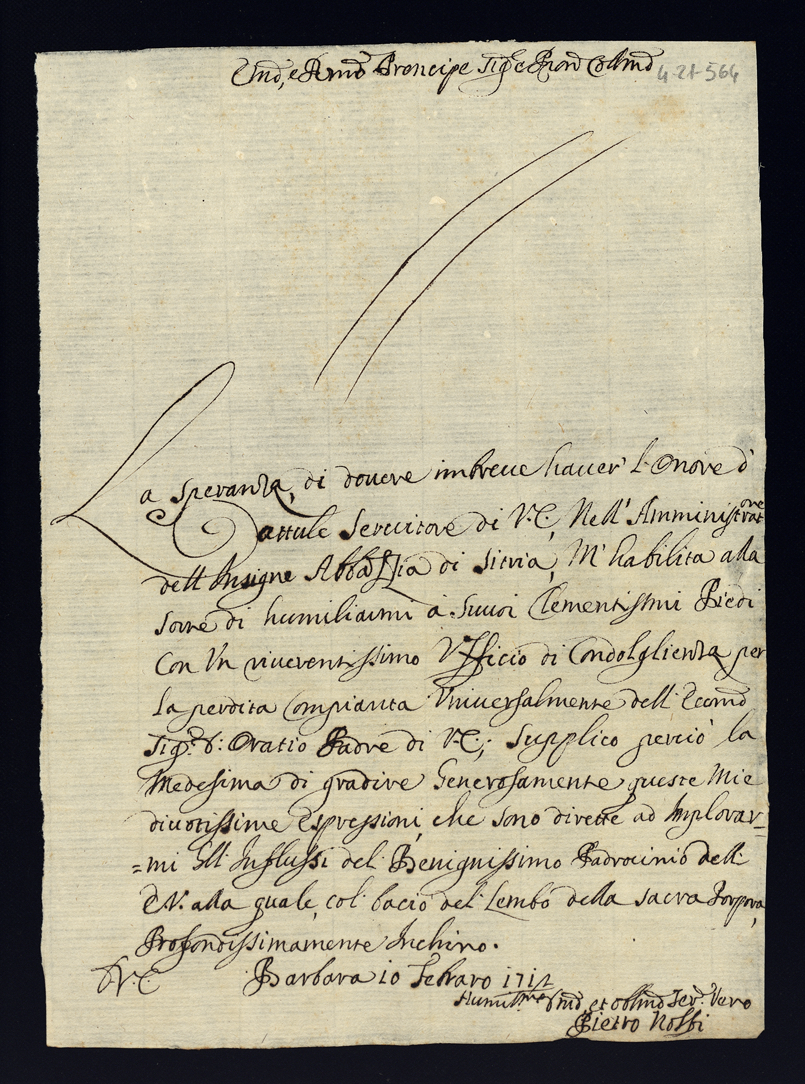 Em̃o, e Rmõ Prencipe Sigẽ Pron Collmõ 4-21-564
La Speranza, di douere imbreue hauer' l'Onore d'
attule Seruitore di V.E, Nell' Amministrat.one
dell Insigne Abbazzia di Sitria, M'habilita alla
Sorte di humiliarmi a Suoi Clementissimi Piedi
Con Vn riuerentissimo Vfficio di Condolglienza per
La perdita Compianta Vniuersalmente dell'
Sig.r D: Oratio Padre di V.E; Supplico perciò la
Medesima di gradire Generosamente queste Mie
diuotissime Espressioni, che sono dirette ad Implorar=
=mi Gl' Influssi del Benignissimo Padrocinio dell:
E.V. alla quale col bacio del Lembo della Sacra Porpora,
Profondissimamente Inchino.
D V.E. Barbara 10 Febraro 1712
Humil.mo et Ser. Vero
Pietro Rossi